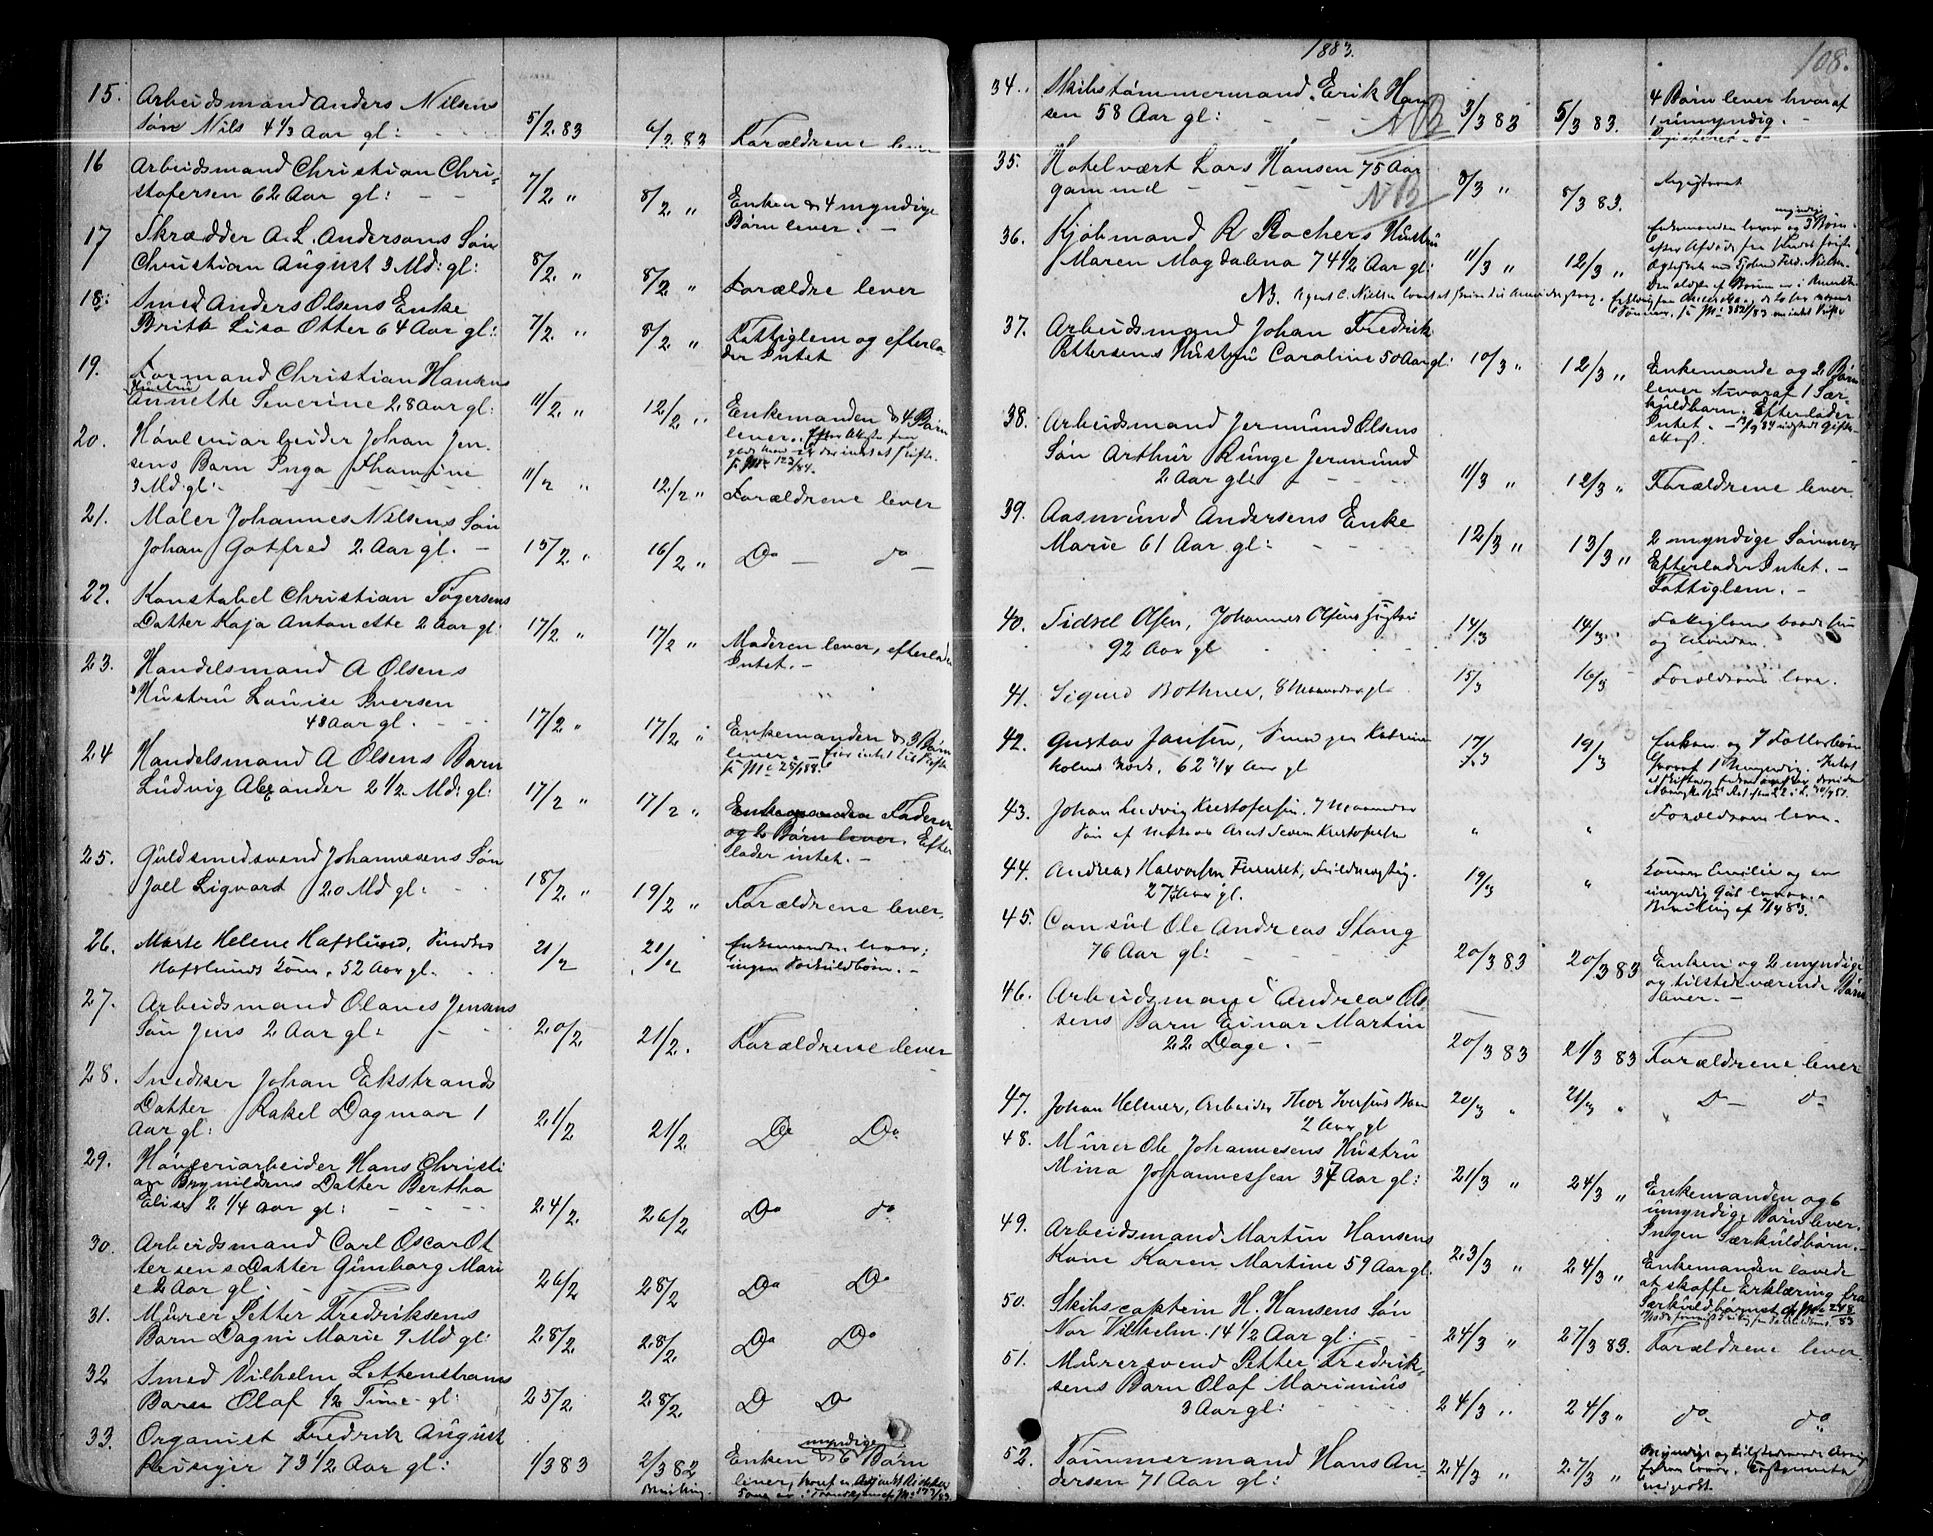 15. Arbeidsmand Anders Nilsens
Søn Nils 4 1/3 Aar gl: 5/2 83 6/2 83 Forældrene lever
16 Arbeidsmand Christian Chri-
stofersen 62 Aar gl: 7/2 " 8/2 " Enken & 4 myndige
Børn lever. -
17 Skrædder A. L. Andersons Søn
Christian August 3 Md: gl: 8/2 " 8/2 " Forældre lever
18: Smed Anders Olsens Enke
Britte Lisa Otter 64 Aar gl: 7/2 " 8/2 " Fattiglem og efterla-
der Intet
19. Formand Christian Hansens
Hustru
Annette Severine 28 Aar gl: 11/2 " 12/2 " Enkemanden & 4 Børn
lever.
20. Høvleriarbeider Johan Jen-
sens Barn Inga Thomine
3 Md. gl: 11/2 " 12/2 " Forældrene lever
21. Maler Johannes Nilsens Søn
Johan Gotfred 2 Aar gl. - 15/2 " 16/2 " Do - do -
22. Konstabel Christian Tøgersens
Datter Kaja Antonette 2 Aar gl: 17/2 " 17/2 " Moderen lever, efterlader
Intet. -
23. Handelsmand A Olsens
Hustru Louise Iversen
48 Aar gl. 17/2 " 17/2 " Enkemanden & 3 Børn
lever.
24 Handelsmand A Olsens Barn
Ludvig Alexander 2 1/2 Md: gl: 17/2 " 17/2 " Enkemanden Faderen
og 2 Børn lever. Efter
lader intet. -
25. Guldsmedsvend Johannesens Søn
Joel Sigvard 20 Md gl: 18/2 " 19/2 " Forældrene lever.
26. Marte Helene Hafslund, Snedker
Hafslunds Kone, 52 Aar gl. 21/2 21/2 Enkemanden lever;
ingen Særkuldbørn. -
27. Arbeidsmand Olanes Jensens
Søn Jens 2 Aar gl: 20/2 21/2. Forældrene lever
28. Snedker Johan Ekstrands
Datter Rakel Dagmar 1
Aar gl: 21/2 21/2 Do Do
29. Høvleriarbeider Hans Christi
an Brynildsens Datter Bertha
Elise 2 1/4 Aar gl: 24/2. 26/2 Do do
30. Arbeidsmand Carl Oscar Ot
tersens Datter Gunborg Mari
e 2 Aar gl. 26/2 28/2 Do Do
31. Murer Petter Fredriksens
Barn Dagni Marie 9 Md gl: 28/2 28/2. Do Do
32 Smed Vilhelm Lettenstrøms
Barn Olaf 1/2 Time gl: 25/2 28/2. D Do
33. Organist Fredrik August
myndige
Reisiger 73 1/2 Aar gl: 1/3 83 2/3 83 Enken & 6 Børn
Bevilling. lever,
1883. 108.
34. Skibstømmermand Erik Han
sen 58 Aar gl: NB 3/3 83 5/3 83. 4 Børn lever hvoraf
1 umyndig. -
Registreret.
35. Hotelvært Lars Hansen 75 Aar
gammel NB 8/3 " 8/3 83.
36. Kjøbmand R Rochers Hustru
Maren Magdalena 74 1/2 Aar gl: 11/3 " 12/3 " Enkemanden lever og 3 Børn
myndige
NB.
37. Arbeidsmand Johan Fredrik
Pettersens Hustru Caroline 50 Aar gl: 10/3 " 12/3 " Enkemande og 2 Børn
lever hvoraf 1 Sær-
kuldbarn. Efterlader
Intet. -
38. Arbeidsmand Jermund Olsens
Søn Arthur Runge Jermund
2 Aar gl: 11/3 " 12/3 " Forældrene lever
39. Aasmund Andersens Enke
Marie 61 Aar gl: 12/3 " 13/3 " 2 myndige Sønner
Efterlader Intet. -
Fattiglem. -
40. Sidsel Olsen, Johannes Olsens Hustru
92 Aar gl 14/3 14/3. Fattiglem baade hun
og Manden.
41. Sigurd Bothner, 8 Maaneder gl. 15/3 16/3 Forældrene lever.
42. Gustav Jansen, Smed paa Katrine
holms Værk, 62 3/4 Aar gl 17/3 19/3 Enken og 7 Fællesbørn
hvoraf 1 umyndig.
43. Johan Ludvig Kristofersen, 7 Maaneder
Søn af Matros Arnt Severin Kristofersen " " Forældrene lever.
44. Andreas Halvorsen
27 Aar gl. 19/3 " Konen Emilie og en
umyndig Gut lever.
Bevilling af 7/4 83.
45. Consul Ole Andreas Stang
76 Aar gl: 20/3 83 20/3 83 Enken og 2 myndige
og tilstedeværende Børn
lever. -
46. Arbeidsmand Andreas Ol-
sens Barn Einar Martin
22 Dage. - 20/3 83 21/3 83 Forældrene lever
47. Johan Helmer, Arbeider Thor Iversens Barn
2 Aar gl 20/3 " 21/3 " Do - do
48. Murer Ole Johannesens Hustru
Mina Johannessen 37 Aar gl: 21/3 " 24/3 " Enkemanden og 6
umyndige Børn lever.
Ingen Særkuldbørn. -
49. Arbeidsmand Martin Hansens
Kone Karen Martine 59 Aar gl. 23/3 " 24/3 " Enkemanden lovede
at skaffe Erklæring fra
Særkuldbarnet
50. Skibscaptein H. Hansens Søn
Nor Vilhelm 14 1/2 Aar gl: 24/3 " 27/3 83. Forældrene lever
51. Murersvend Petter Fredrik-
sens Barn Olaf Marinius
3 Aar gl: 24/3 " 24/3 " do do
52. Tømmermand Hans An-
dersen 71 Aar gl: 24/3 " 27/3 "